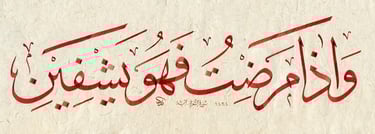 وَاِذَا مَرِضْتُ فَهُوَ يَشْفِينِ